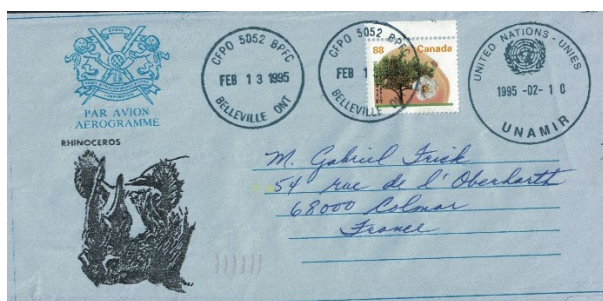 KENYA
PAR AVION
AEROGRAMME
RHINOCEROS
CFPO 5052 BPFC
FEB 13 1995
BELLEVILLE ONT
CFPO 5052 BPFC
FEB 1
BELLEVILLE
88 Canada
UNITED NATIONS - UNIES
1995 -02- 10
UNAMIR
M. Gabriel Frick
54 rue de l'Oberharth
68000 Colmar
France